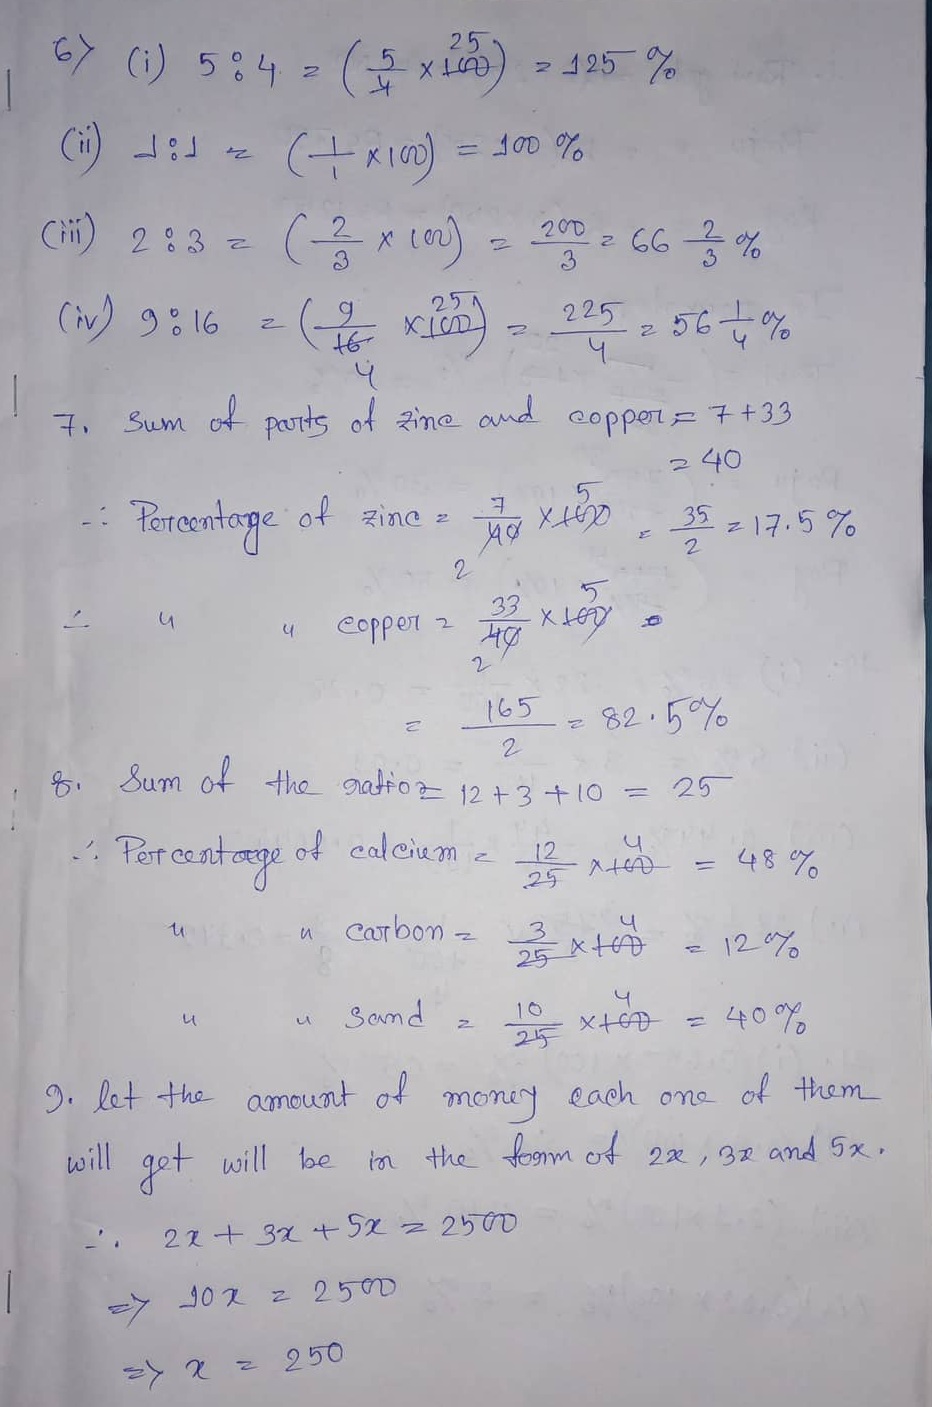 6) (i) 5:4 = (5/4 × 100) 25 = 125 %
(ii) 1:1 = (1/1 × 100) = 100 %
(iii) 2:3 = (2/3 × 100) = 200/3 = 66 2/3 %
(iv) 9:16 = (9/16 × 100) 25 4 = 225/4 = 56 1/4 %
7. Sum of parts of zinc and copper = 7 + 33
= 40
∴ Percentage of zinc = 7/40 × 100 2 5 = 35/2 = 17.5 %
∴ " " copper = 33/40 × 100 2 5 =
= 165/2 = 82.5%
8. Sum of the ratio = 12 + 3 + 10 = 25
∴ Percentage of calcium = 12/25 × 100 4 = 48 %
" " carbon = 3/25 × 100 4 = 12 %
" " Sand = 10/25 × 100 4 = 40 %
9. let the amount of money each one of them
will get will be in the form of 2x, 3x and 5x.
∴ 2x + 3x + 5x = 2500
=> 10x = 2500
=> x = 250